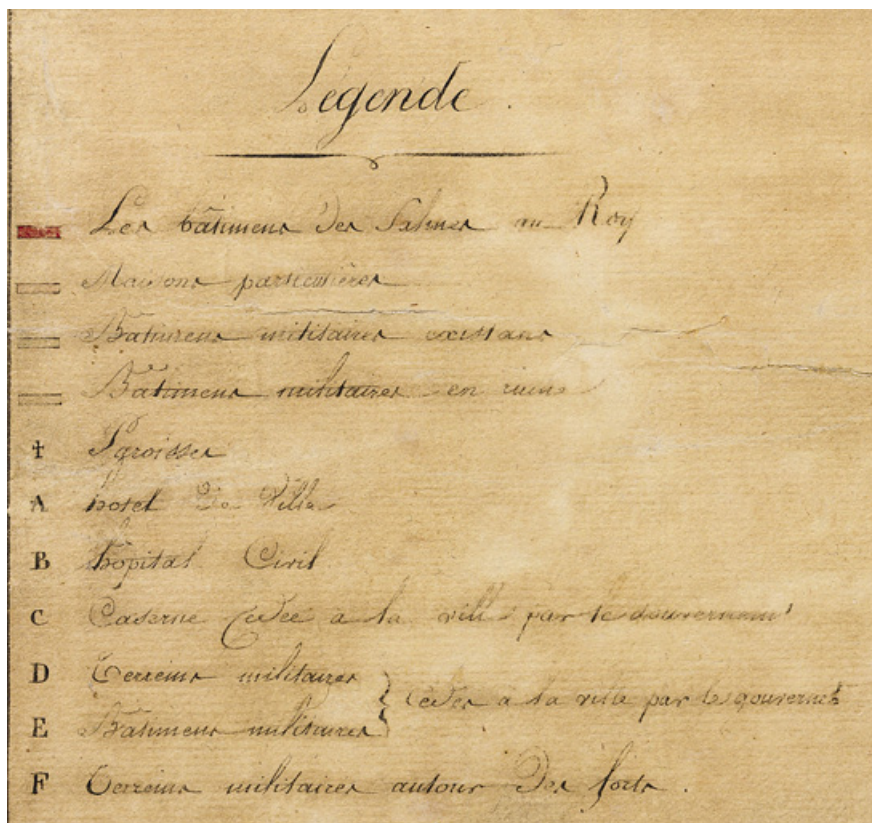 Légende.
Les bâtimens des Salines au Roy
Maisons particulières
Batimens militaires existans
Bâtimens militaires en ruine
† Paroisse
A hotel De Ville
B hôpital Civil
C Caserne Cedée a la ville par le Gouvernem^t
D Terreins militaires
} cédés a la ville par le gouvernet
E Batimens militaires
F Terreins militaires autour Des forts.